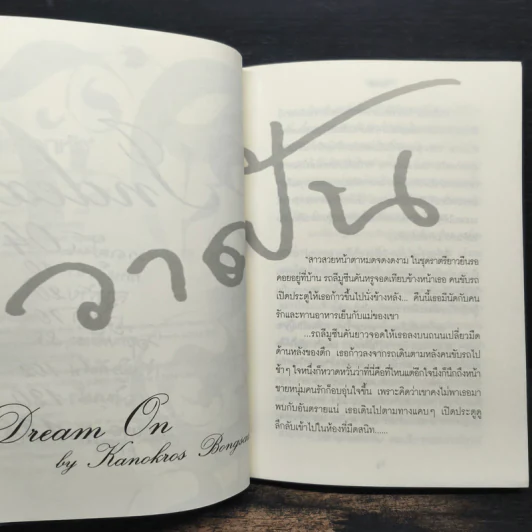 วาฝัน
Dream On
by Kanokros Bongsa
"สาวสวยหน้าตาหมดจดงดงาม ในชุดราตรียาวยืนรอ
คอยอยู่ที่บ้าน รถลีมูซีนคันหรูจอดเทียบข้างหน้าเธอ คนขับรถ
เปิดประตูให้เธอก้าวขึ้นไปนั่งข้างหลัง... คืนนี้เธอมีนัดกับคน
รักและทานอาหารเย็นกับแม่ของเขา
...รถลีมูซีนคันยาวจอดให้เธอลงบนถนนเปลี่ยวมืด
ด้านหลังของตึก เธอก้าวลงจากรถเดินตามหลังคนขับรถไป
ช้าๆ ใจหนึ่งก็หวาดหวั่นว่าที่นี่คือที่ไหนแต่อีกใจนึงก็นึกถึงหน้า
ชายหนุ่มคนรักก็อบอุ่นใจขึ้น เพราะคิดว่าเขาคงไม่พาเธอมา
พบกับอันตรายแน่ เธอเดินไปตามทางแคบๆ เปิดประตูดู
ลึกลับเข้าไปในห้องที่มืดสนิท......